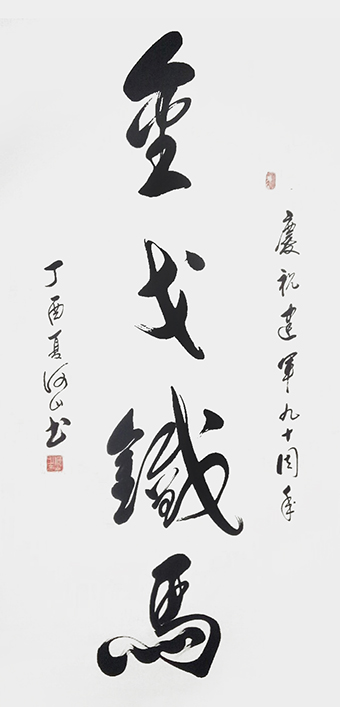 慶祝建軍九十周年
金戈鐵馬
丁酉夏河山書